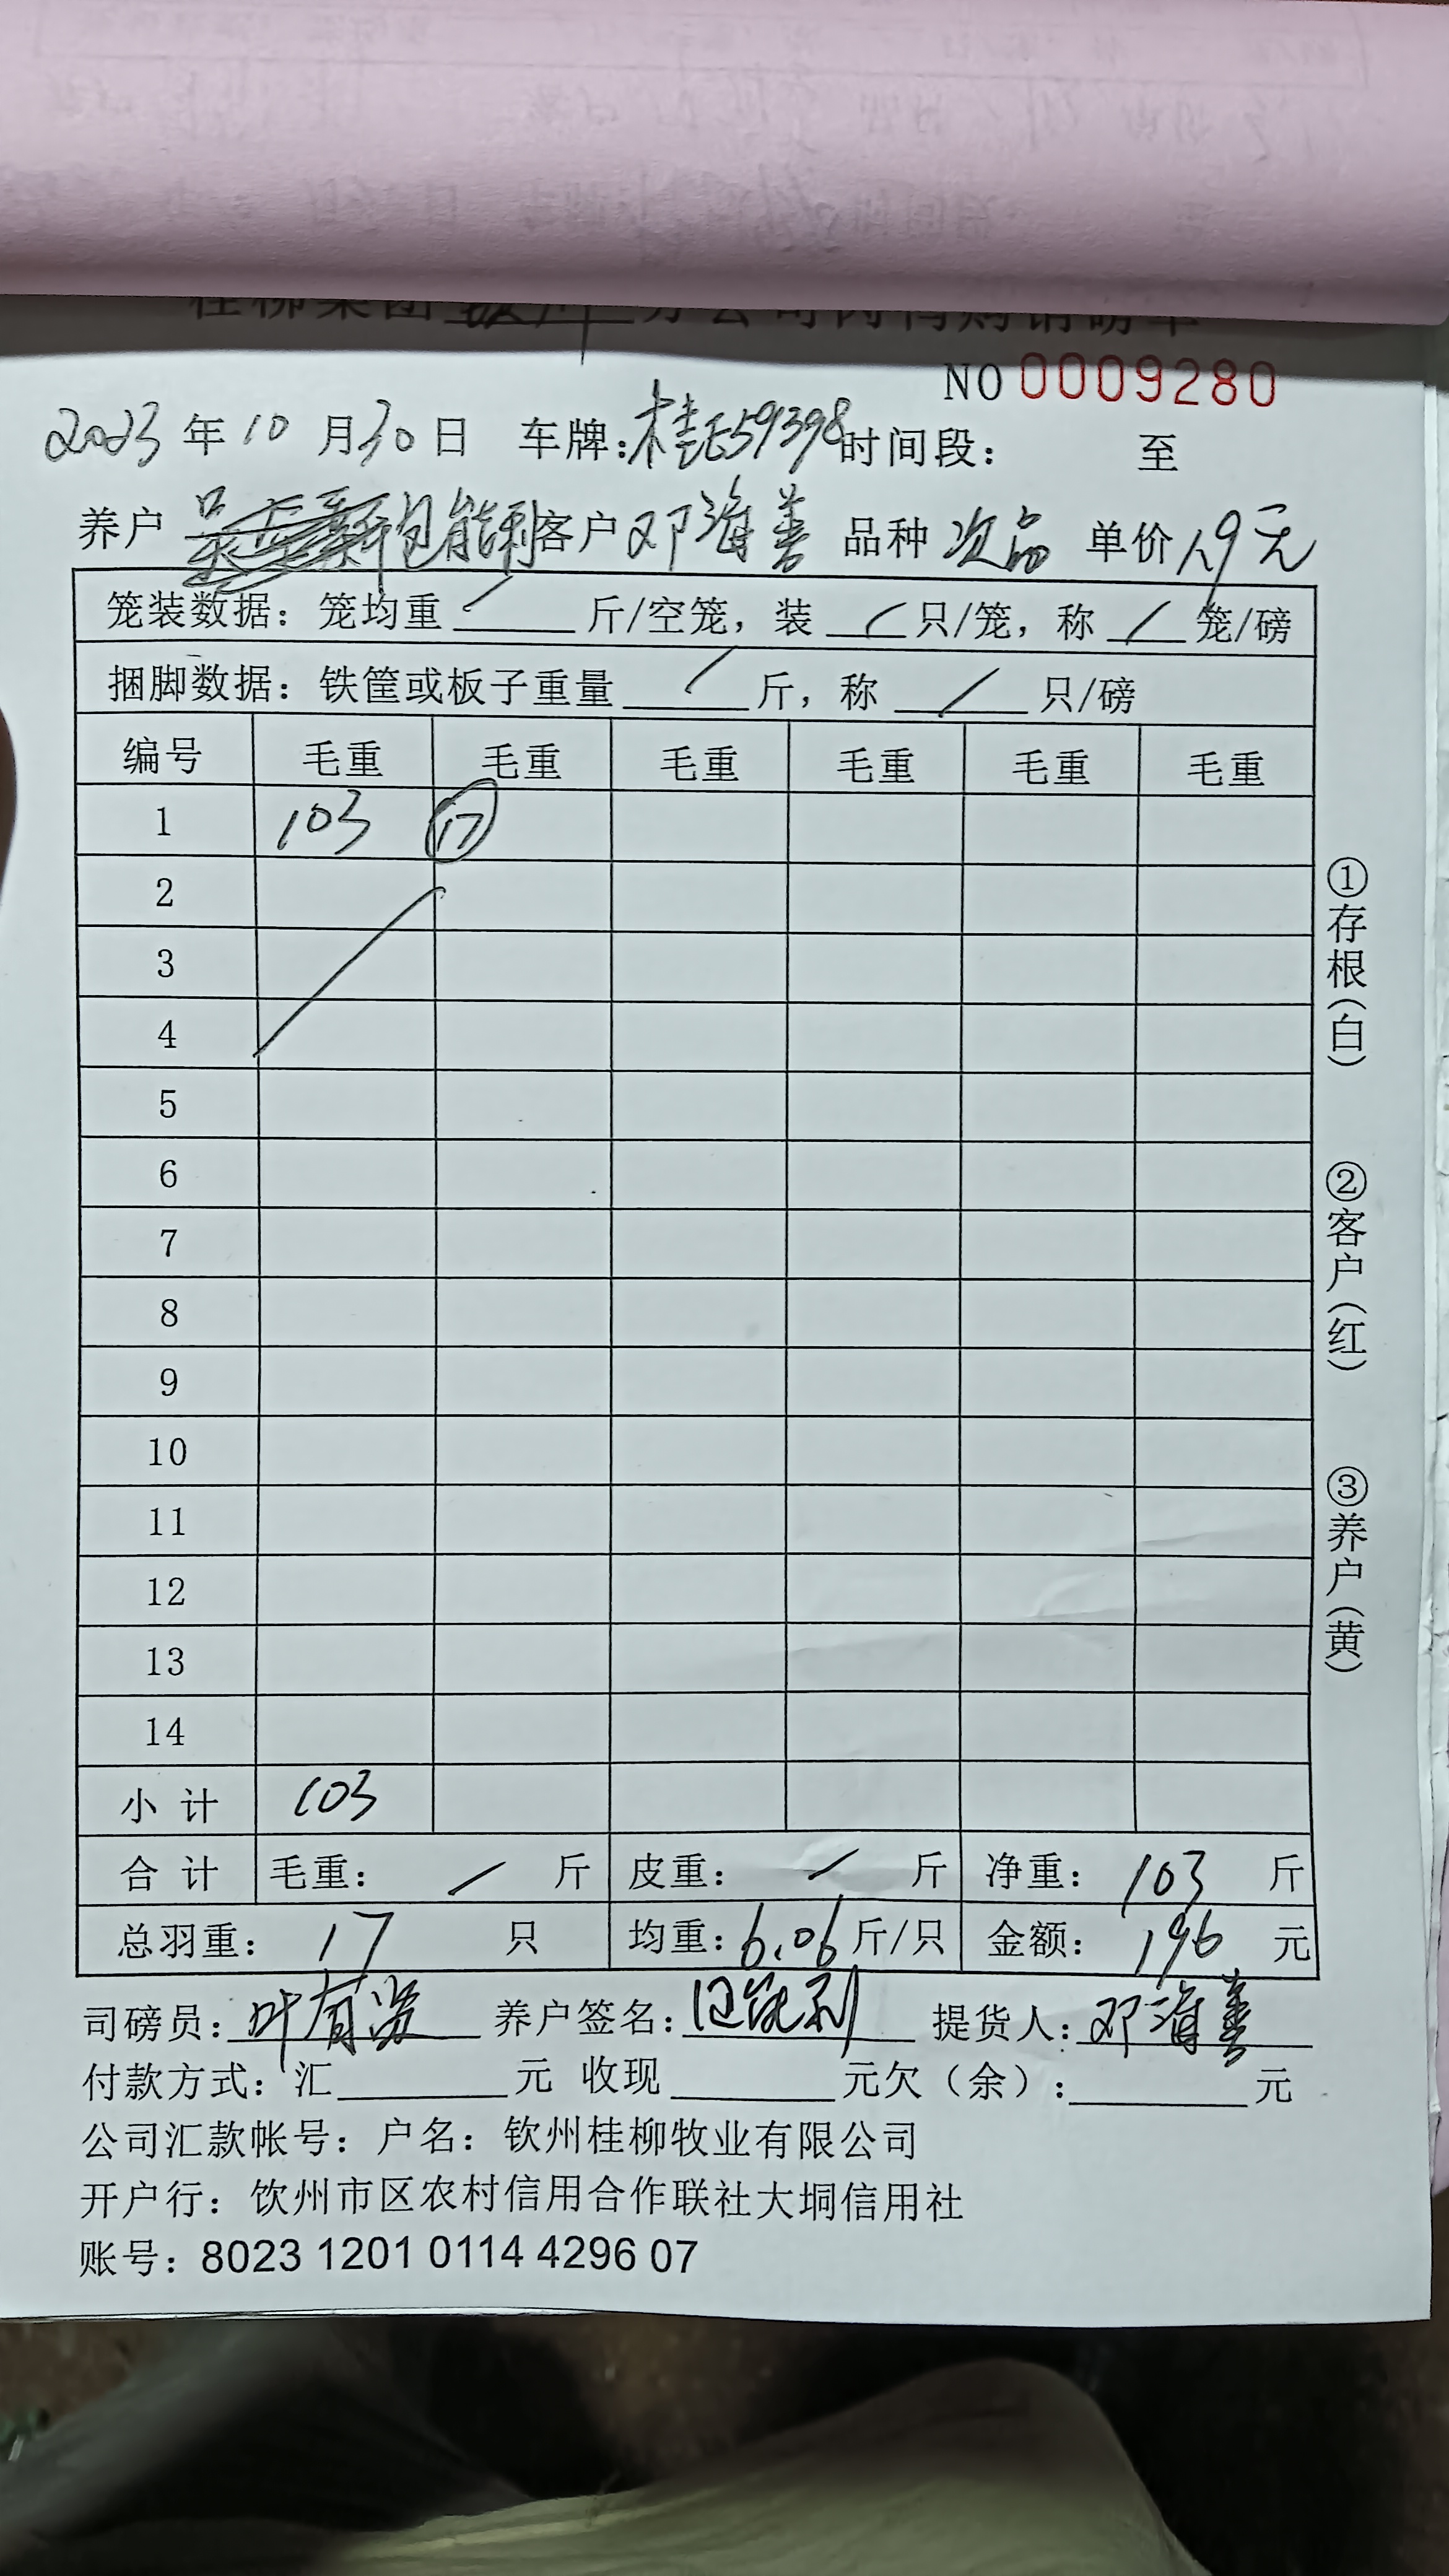 NO 0009280
2023 年 10 月 30 日 车牌: 桂E59398 时间段: 至
养户 包能利 客户 邓海善 品种 次品 单价 1.9元
笼装数据: 笼均重 / 斤/空笼, 装 / 只/笼, 称 / 笼/磅
捆脚数据: 铁筐或板子重量 / 斤, 称 / 只/磅
编号 毛重 毛重 毛重 毛重 毛重 毛重
1 103 17
2
3
4
5
6
7
8
9
10
11
12
13
14
小计 103
合计 毛重: / 斤 皮重: / 斤 净重: 103 斤
总羽重: 17 只 均重: 6.06 斤/只 金额: 196 元
司磅员: 叶有 养户签名: 包能利 提货人: 邓海善
付款方式: 汇 元 收现 元欠(余): 元
公司汇款帐号: 户名: 钦州桂柳牧业有限公司
开户行: 饮州市区农村信用合作联社大垌信用社
账号: 8023 1201 0114 4296 07
①存根(白)
②客户(红)
③养户(黄)